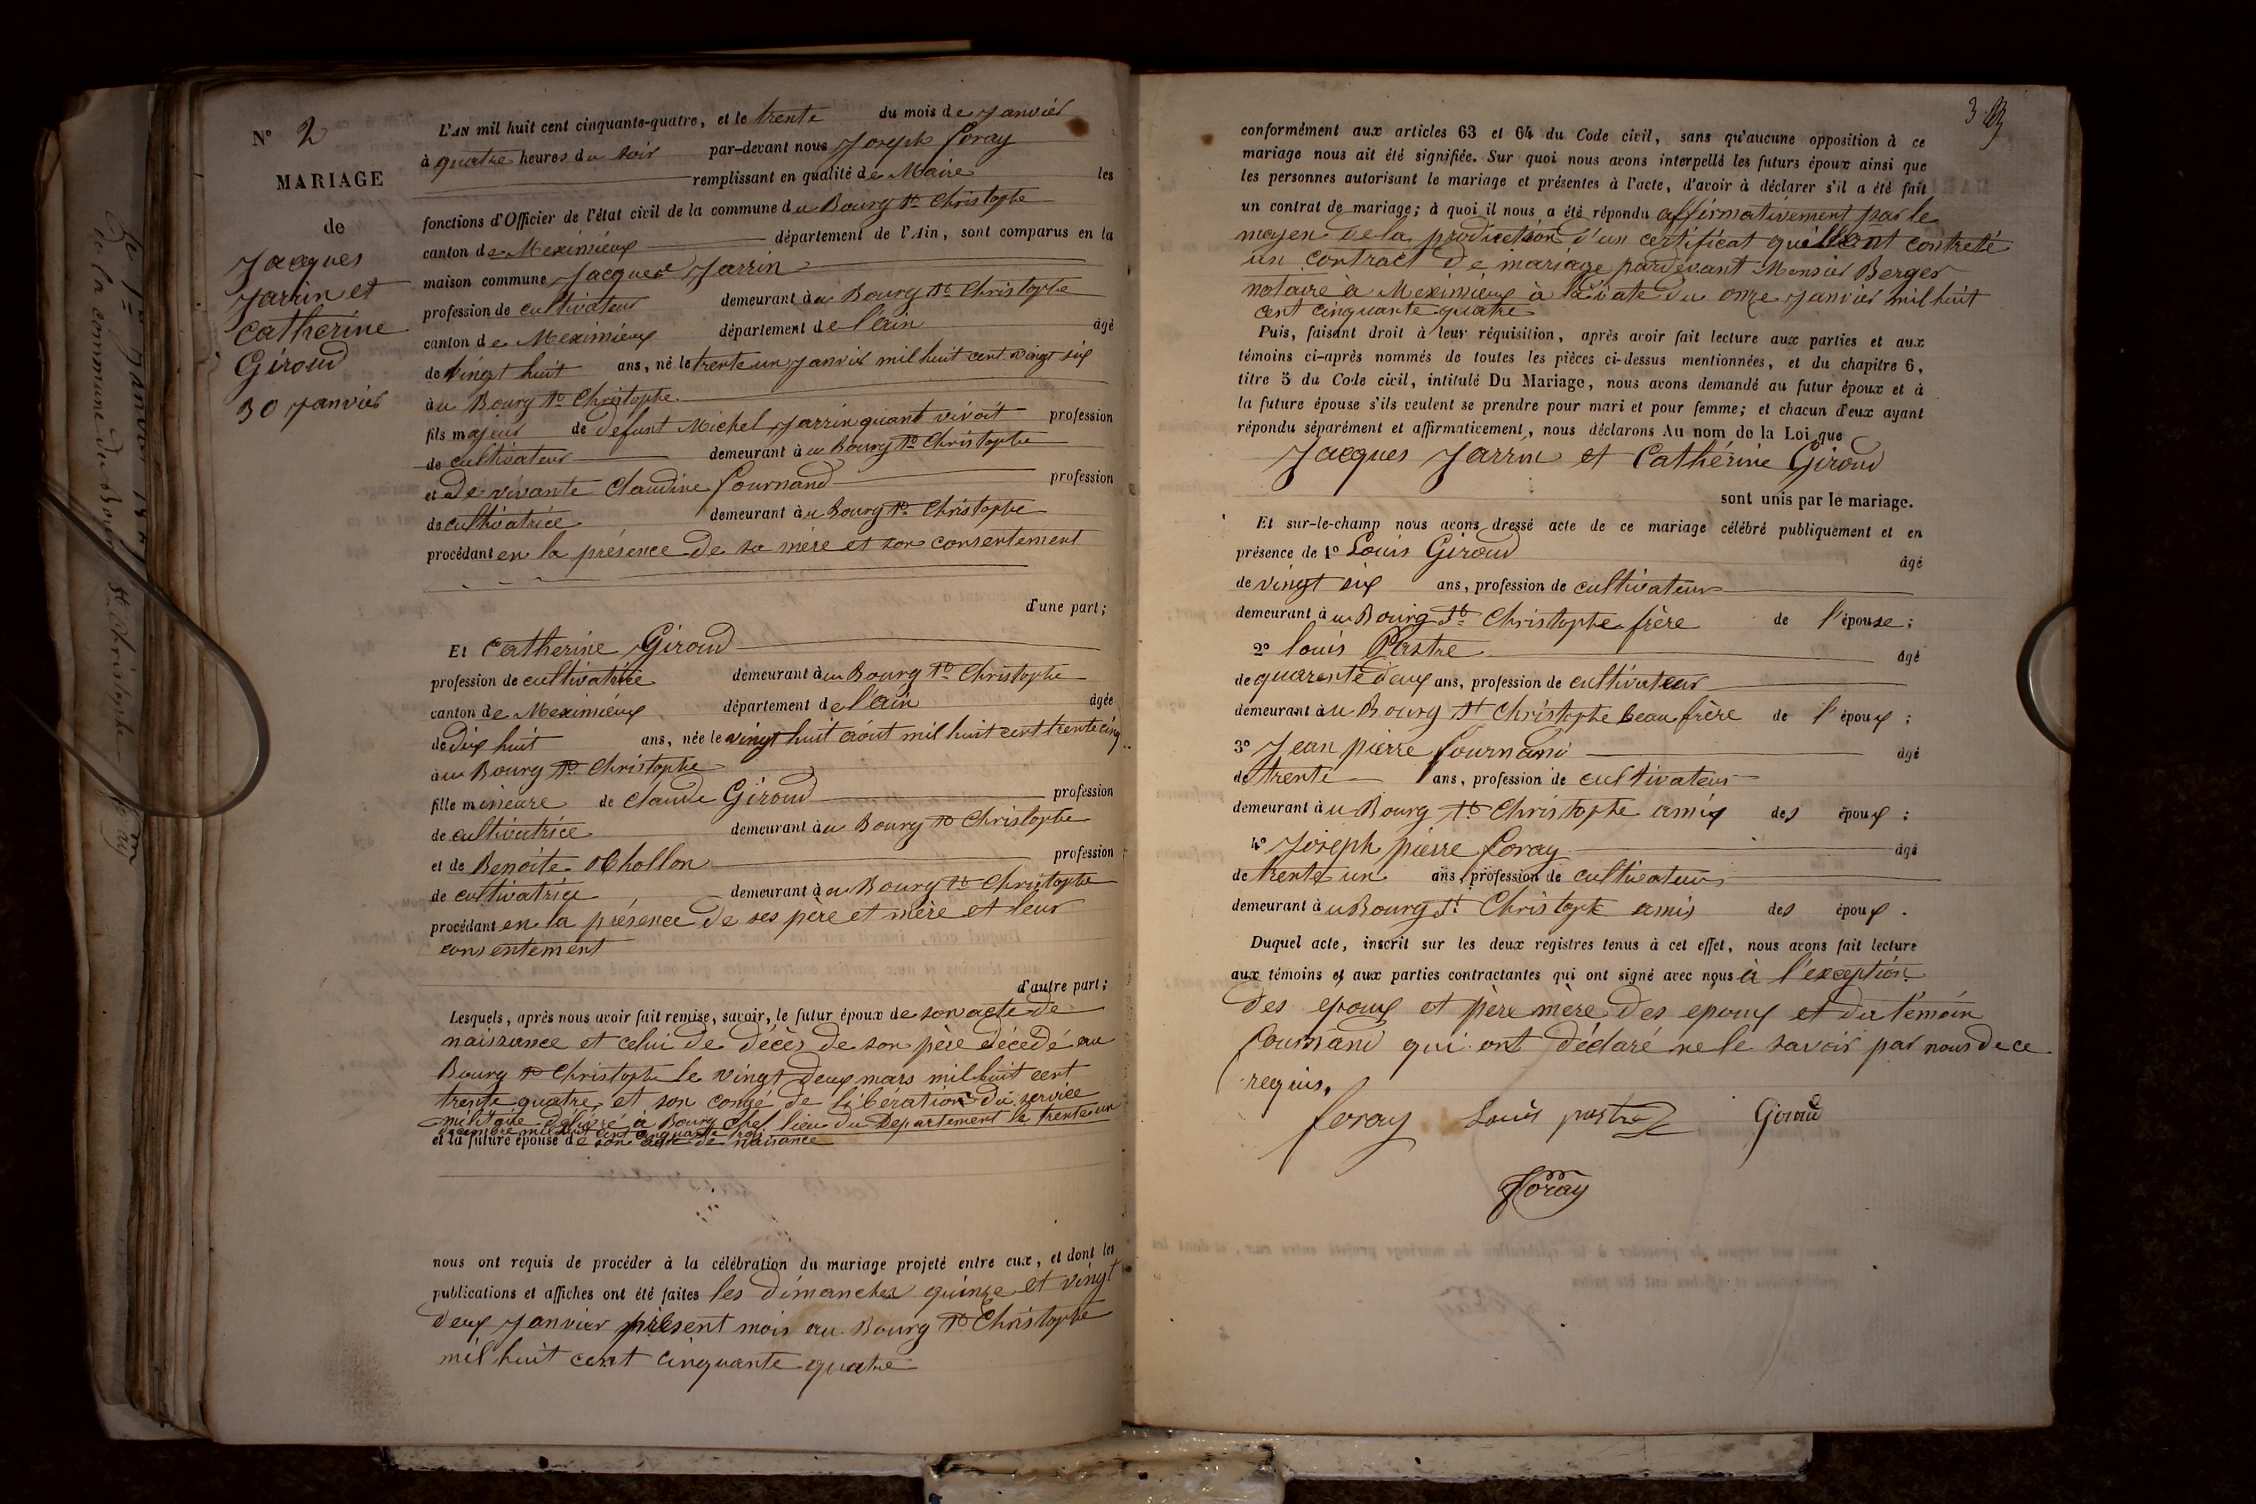 N° 2
MARIAGE
de
Jacques
Jarrin et
Catherine
Giroud
30 Janvier
L'AN mil huit cent cinquante-quatre, et le trente du mois de Janvier
à quatre heures du soir par-devant nous Joseph Foray
remplissant en qualité de Maire les
fonctions d'Officier de l'état civil de la commune du Bourg St Christophe
canton de Meximieux département de l'Ain, sont comparus en la
maison commune Jacques Jarrin
profession de cultivateur demeurant à u Bourg St Christophe
canton de Meximieux département de l'ain âgé
de vingt huit ans, né le trente un Janvier mil huit cent vingt six
à u Bourg St Christophe
fils majeur de defunt Michel Jarrin quant vivoit profession
de cultivateur demeurant à u Bourg St Christophe
et de vivante Claudine Fournand profession
de cultivatrice demeurant à u Bourg St Christophe
procédant en la présence de sa mère et son consentement
d'une part;
Et Catherine Giroud
profession de cultivatrice demeurant à u Bourg St Christophe
canton de Meximieux département de l'ain âgée
de dix huit ans, née le vingt huit août mil huit cent trente cinq
à u Bourg St Christophe
fille mineure de Claude Giroud profession
de cultivatrice demeurant à u Bourg St Christophe
et de Benoite Chollon profession
de cultivatrice demeurant à u Bourg St Christophe
procédant en la présence de ses père et mère et leur
consentement
d'autre part;
Lesquels, après nous avoir fait remise, savoir, le futur époux de son acte de
naissance et celui de décès de son père décédé au
Bourg St Christophe le vingt deux mars mil huit cent
trente quatre et son congé de libération du service
militaire délivré à Bourg chef lieu du Departement le trente un
décembre mil huit cent cinquante trois
et la future épouse de son acte de naissance
nous ont requis de procéder à la célébration du mariage projeté entre eux, et dont les
publications et affiches ont été faites les dimanches quinze et vingt
deux Janvier présent mois au Bourg St Christophe
mil huit cent cinquante quatre
3
conformément aux articles 63 et 64 du Code civil, sans qu'aucune opposition à ce
mariage nous ait été signifiée. Sur quoi nous avons interpellé les futurs époux ainsi que
les personnes autorisant le mariage et présentes à l'acte, d'avoir à déclarer s'il a été fait
un contrat de mariage; à quoi il nous a été répondu affirmativement par le
moyen de la production d'un certificat qu'ils ont contreté
un contract de mariage pardevant Monsier Berger
notaire à Meximieux à la date du onze Janvier mil huit
cent cinquante quatre
Puis, faisant droit à leur réquisition, après avoir fait lecture aux parties et aux
témoins ci-après nommés de toutes les pièces ci-dessus mentionnées, et du chapitre 6,
titre 5 du Code civil, intitulé Du Mariage, nous avons demandé au futur époux et à
la future épouse s'ils veulent se prendre pour mari et pour femme; et chacun d'eux ayant
répondu séparément et affirmativement, nous déclarons Au nom de la Loi que
Jacques Jarrin et Cathérine Giroud
sont unis par le mariage.
Et sur-le-champ nous avons dressé acte de ce mariage célébré publiquement et en
présence de 1° Louis Giroud âgé
de vingt six ans, profession de cultivateur
demeurant à u Bourg St Christophe frère de l'épouse;
2° louis Pastre âgé
de quarente deux ans, profession de cultivateur
demeurant à u Bourg St Christophe beau frère de l'époux;
3° Jean pierre Fournand âgé
de trente ans, profession de cultivateur
demeurant à u Bourg St Christophe amis des époux;
4° Joseph pierre Foray âgé
de trente un ans, profession de cultivateur
demeurant à u Bourg St Christophe amis des époux.
Duquel acte, inscrit sur les deux registres tenus à cet effet, nous avons fait lecture
aux témoins et aux parties contractantes qui ont signé avec nous à l'exception
des epoux et père mère des epoux et du témoin
Fournand qui ont déclaré ne le savoir par nous de ce
requis.
foray Louis pastre Giroud
Foray